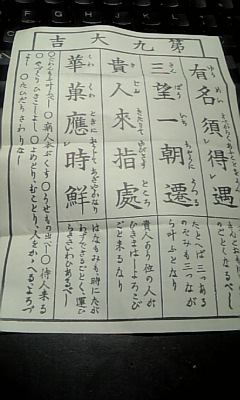 第九大吉
有名須得遇
三望一朝遷
貴人来指處
華菓應時鮮
のごとくなるべし
たとへば三つある
のぞみも三つなが
ら叶ふとなり
貴人あり位の人が
ひきまはしよろこび
ごと来るなり
はなもみも、時にたが
わずできるごとく、運ひ
らきさいわひあるべし
○病人本ぷくす
○うせもの出べし○待人来る
○やづくりひきこしよし○よめとり、むことり、人をかゝへる、よろづ
よし○たびだちさわりなし